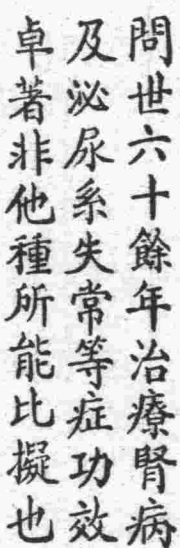 問世六十餘年治療腎病
及泌尿系失常等症功效
卓著非他種所能比擬也